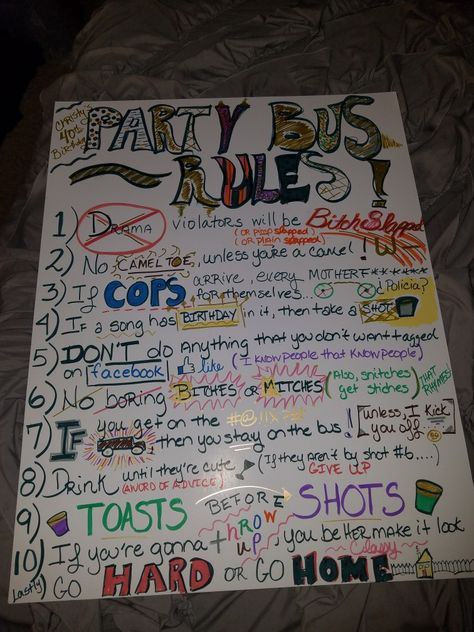 CHRISTY'S
40th
Birthday
PARTY BUS
RULES!
1) DRAMA violators will be BitcheSlapped
(OR PIMP slapped)
(OR plain slapped)
2) No CAMEL TOE, unless you're a camel!
3) If COPS arrive, every MOTHERF******
for themselves... Policia?
4) IF a song has BIRTHDAY in it, then take a SHOT
5) DON'T do anything that you don't want tagged
on facebook like (I know people that know people)
6) No boring BITCHES OR MITCHES (Also, snitches
get stiches) THAT RHYMES
7) IF you get on the
then you stay on the bus! [unless, I kick
you off...
8) Drink until they're cute (If they aren't by shot #6....)
(A WORD OF ADVICE) GIVE UP
9) TOASTS BEFORE SHOTS
10) If you're gonna throw up, you better make it look
Classy
Lastly GO HARD OR GO HOME